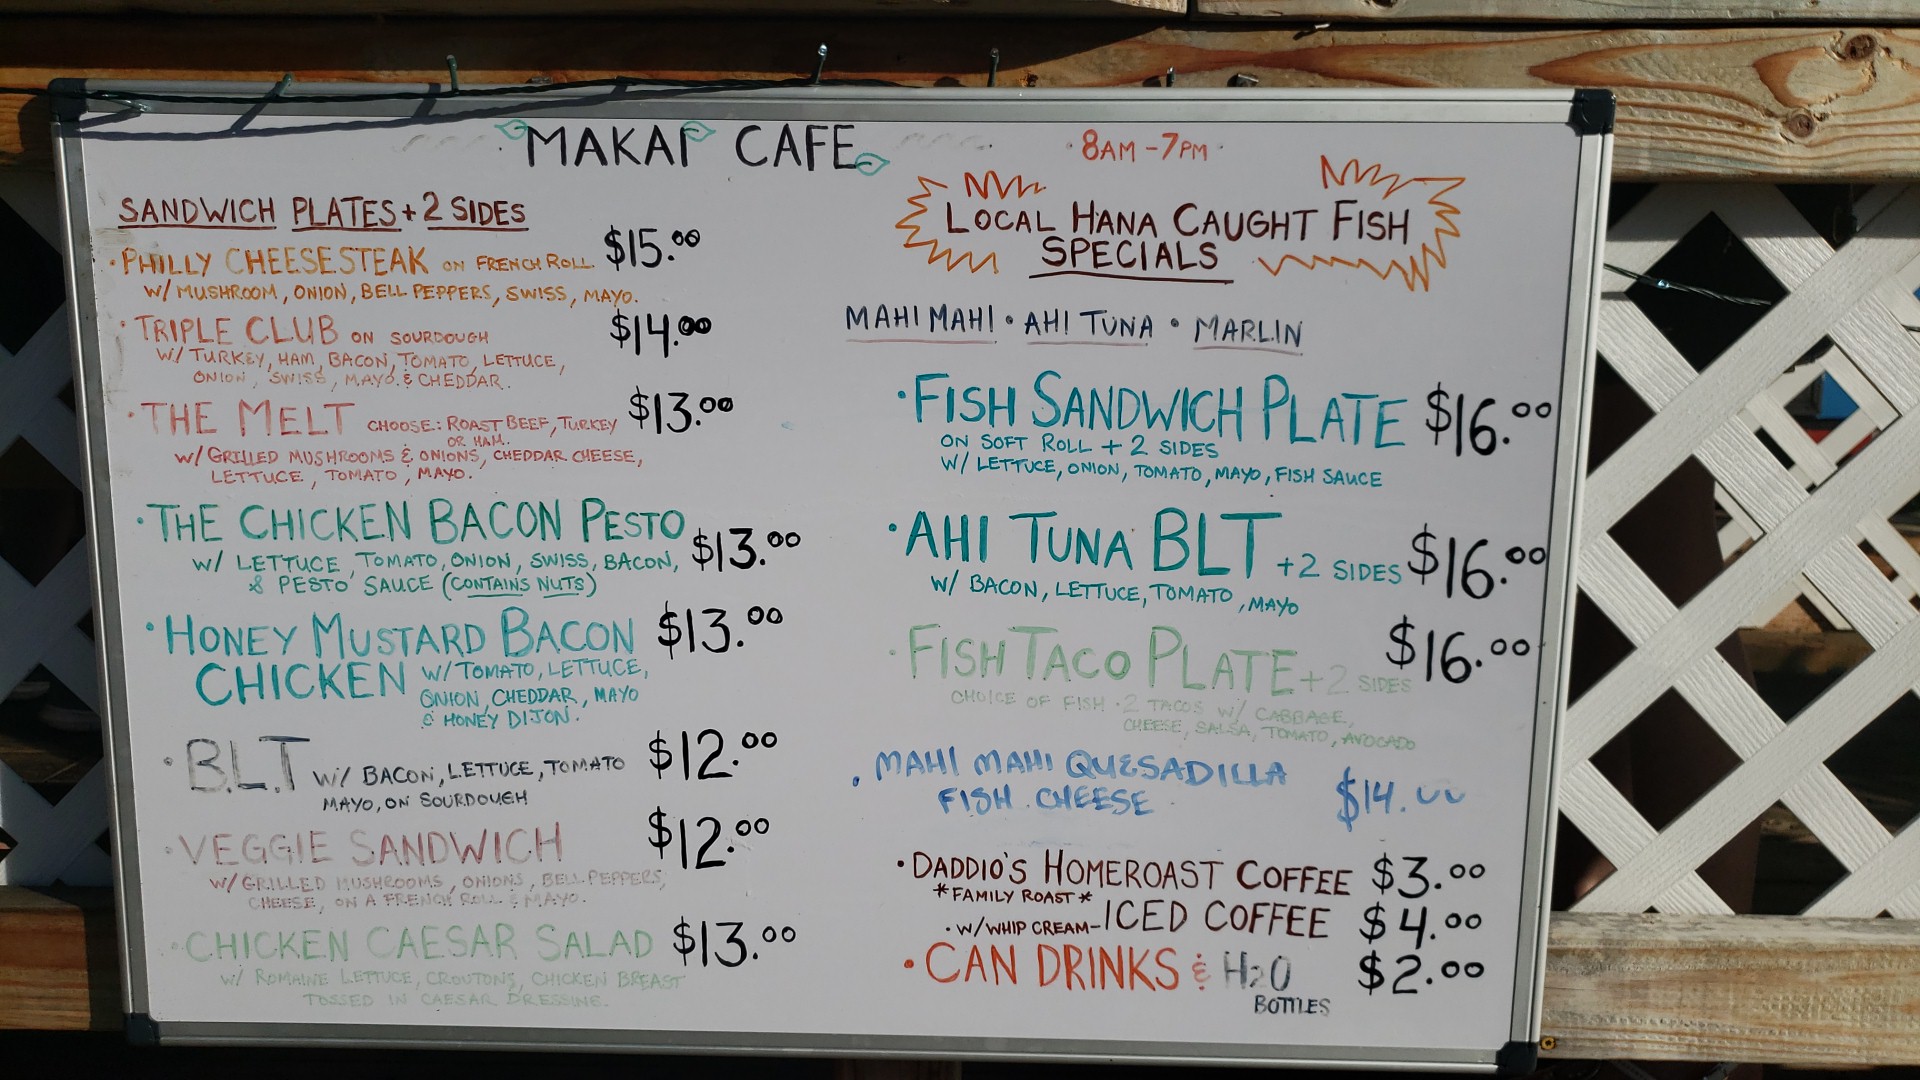 MAKAI CAFE
8AM - 7PM
SANDWICH PLATES + 2 SIDES
• PHILLY CHEESESTEAK ON FRENCH ROLL $15.00
W/ MUSHROOM, ONION, BELL PEPPERS, SWISS, MAYO.
• TRIPLE CLUB ON SOURDOUGH $14.00
W/ TURKEY, HAM, BACON, TOMATO, LETTUCE,
ONION, SWISS, MAYO. & CHEDDAR.
• THE MELT CHOOSE: ROAST BEEF, TURKEY $13.00
OR HAM.
W/ GRILLED MUSHROOMS & ONIONS, CHEDDAR CHEESE,
LETTUCE, TOMATO, MAYO.
• THE CHICKEN BACON PESTO $13.00
W/ LETTUCE, TOMATO, ONION, SWISS, BACON,
& PESTO SAUCE (CONTAINS NUTS)
• HONEY MUSTARD BACON $13.00
CHICKEN W/ TOMATO, LETTUCE,
ONION, CHEDDAR, MAYO
& HONEY DIJON.
• B.L.T W/ BACON, LETTUCE, TOMATO $12.00
MAYO, ON SOURDOUGH
• VEGGIE SANDWICH $12.00
W/ GRILLED MUSHROOMS, ONIONS, BELL PEPPERS,
CHEESE, ON A FRENCH ROLL & MAYO.
• CHICKEN CAESAR SALAD $13.00
W/ ROMAINE LETTUCE, CROUTONS, CHICKEN BREAST
TOSSED IN CAESAR DRESSING.
LOCAL HANA CAUGHT FISH
SPECIALS
MAHI MAHI • AHI TUNA • MARLIN
• FISH SANDWICH PLATE $16.00
ON SOFT ROLL + 2 SIDES
W/ LETTUCE, ONION, TOMATO, MAYO, FISH SAUCE
• AHI TUNA BLT + 2 SIDES $16.00
W/ BACON, LETTUCE, TOMATO, MAYO
• FISH TACO PLATE + 2 SIDES $16.00
CHOICE OF FISH • 2 TACOS W/ CABBAGE,
CHEESE, SALSA, TOMATO, AVOCADO
• MAHI MAHI QUESADILLA $14.00
FISH . CHEESE
• DADDIO'S HOMEROAST COFFEE $3.00
*FAMILY ROAST*
• W/ WHIP CREAM - ICED COFFEE $4.00
• CAN DRINKS & H2O $2.00
BOTTLES